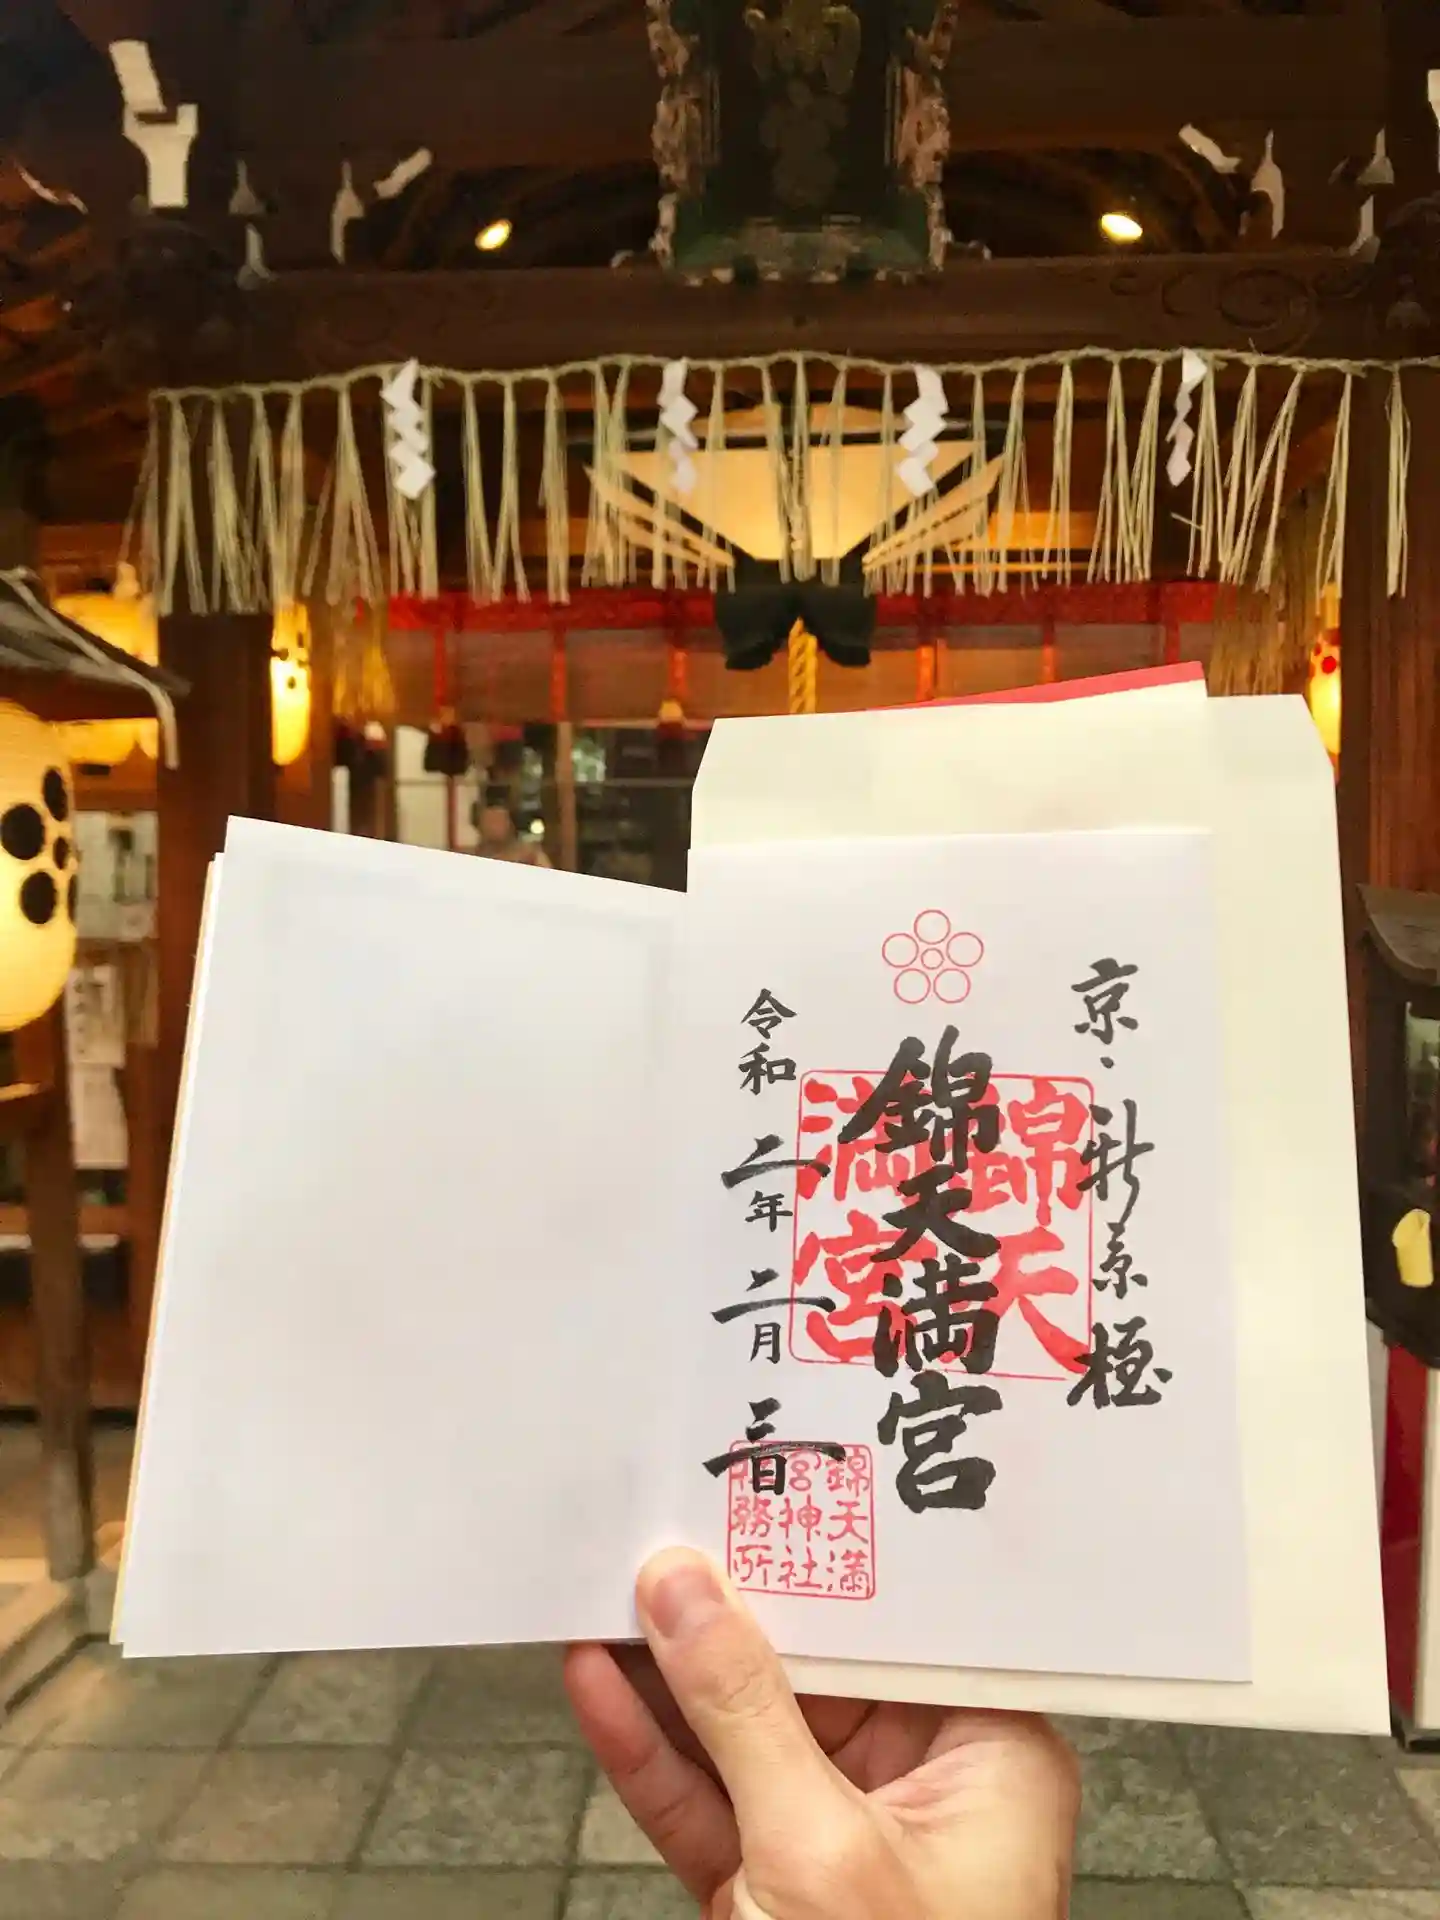 京・新京極
錦天満宮
錦天
満宮
令和二年二月三日
錦天満
宮神社
社務所